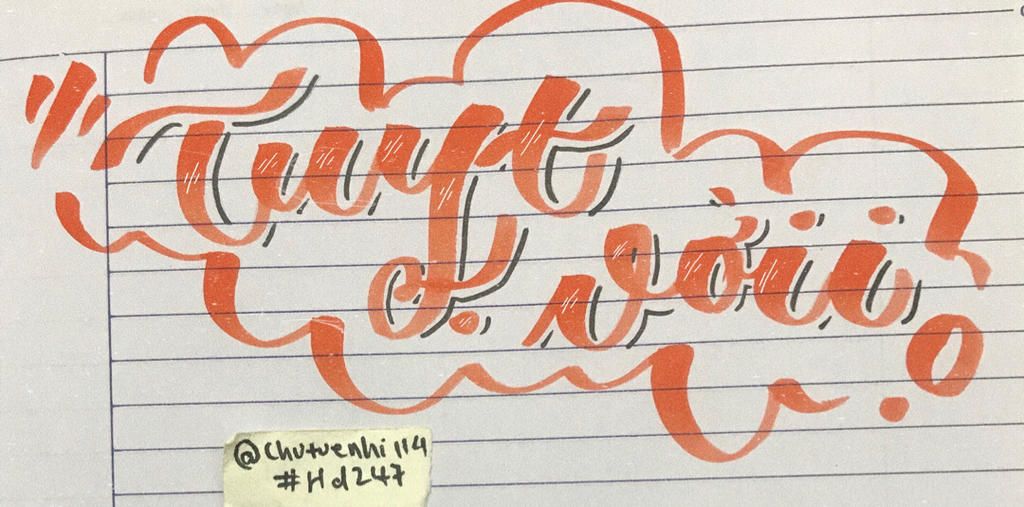 Tuyt
vờii
@Chutuenhi114
#Hd247